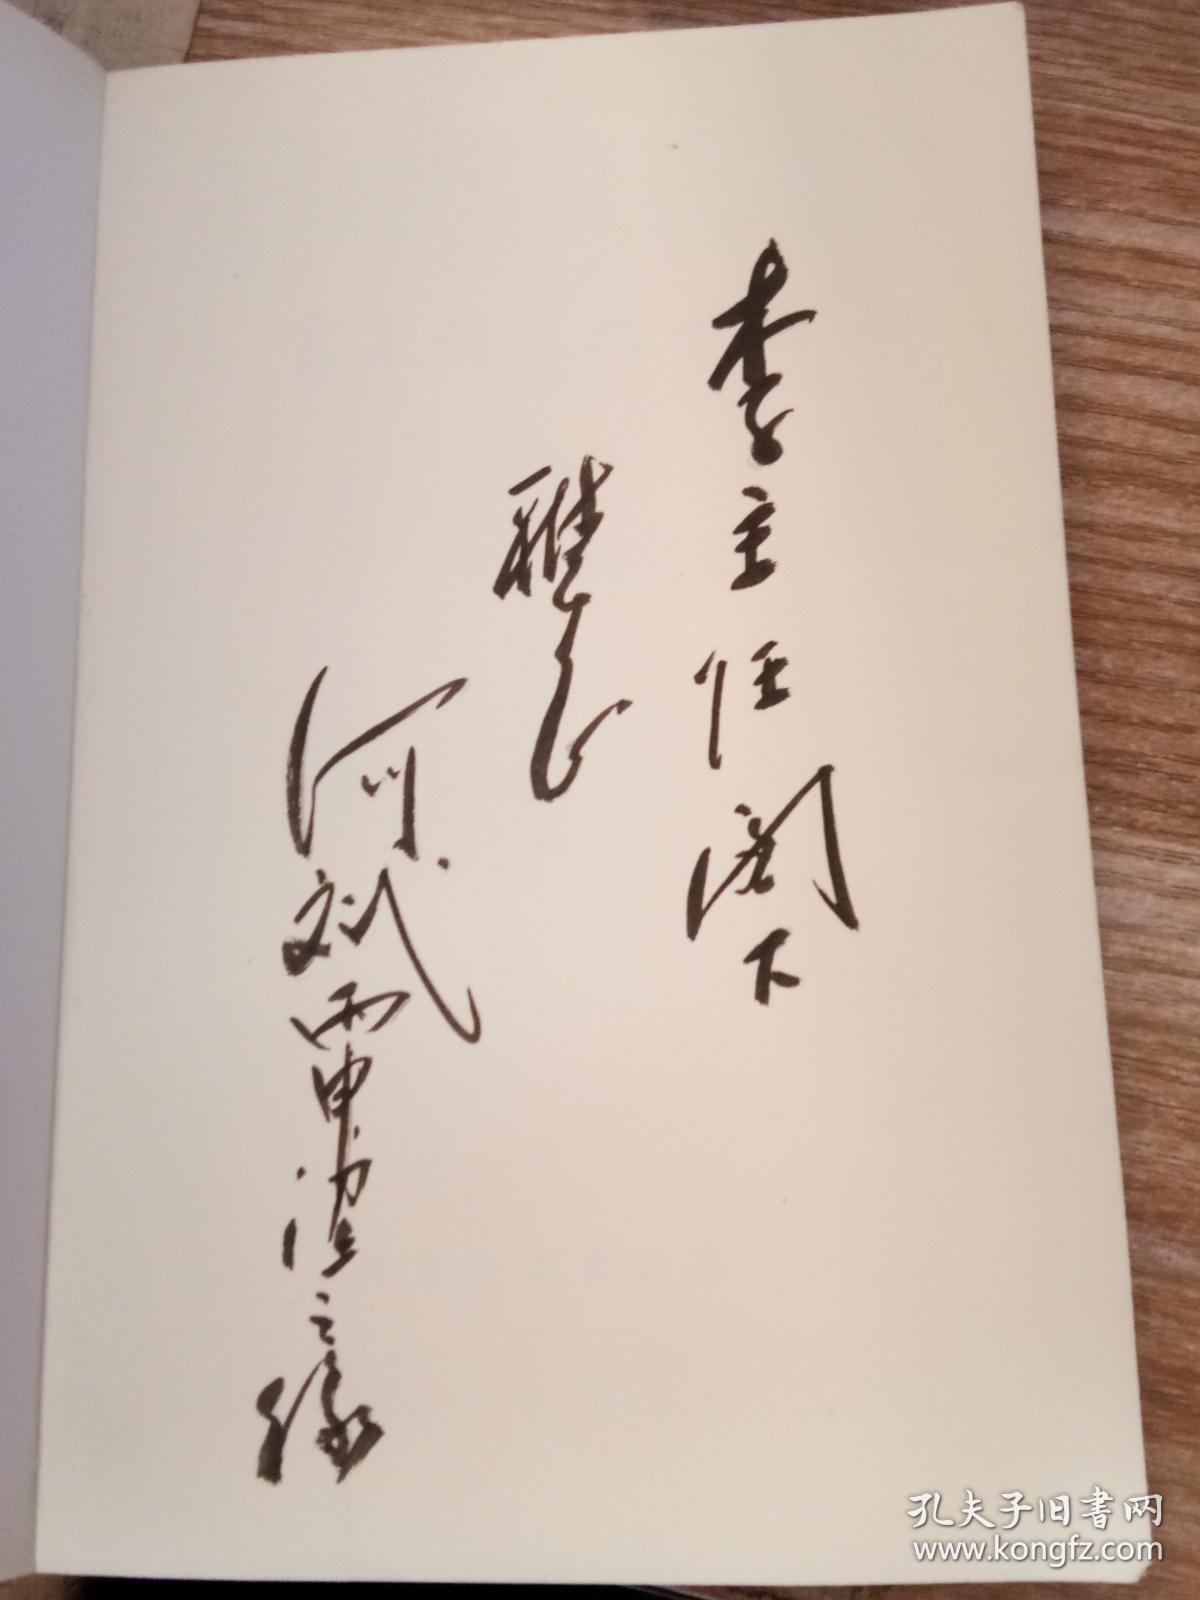 李主任阁下
雅正
斌丙申之缘
孔夫子旧书网
www.kongfz.com